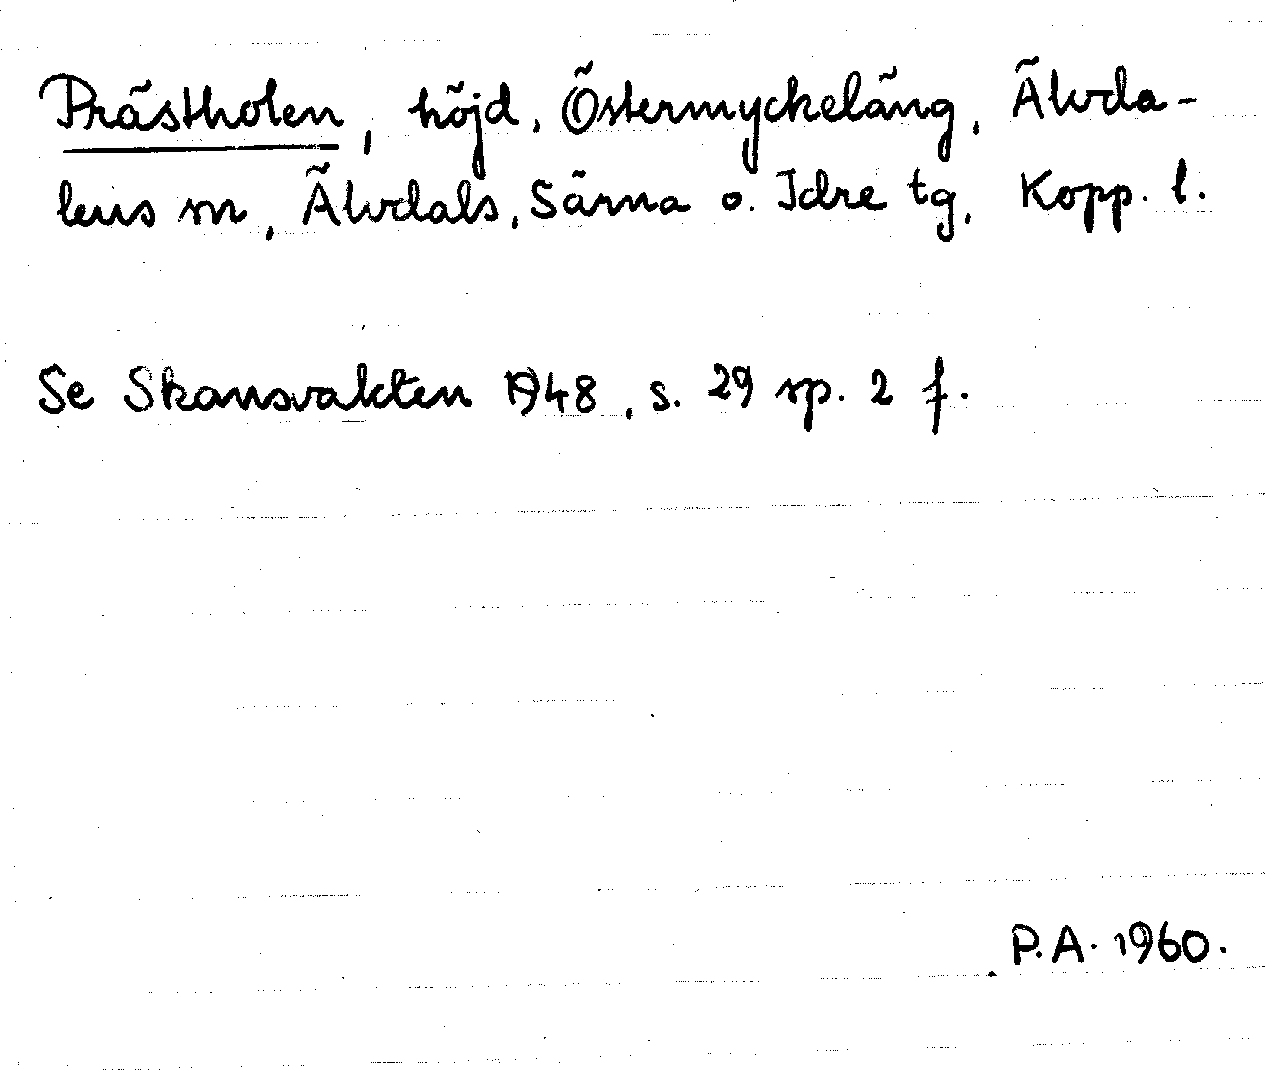 Prästholen, höjd, Östermyckeläng, Älvda-
lens sn, Älvdals, Särna o. Idre tg, Kopp. l.
Se Skansvakten 1948, s. 29 sp. 2 f.
P.A. 1960.